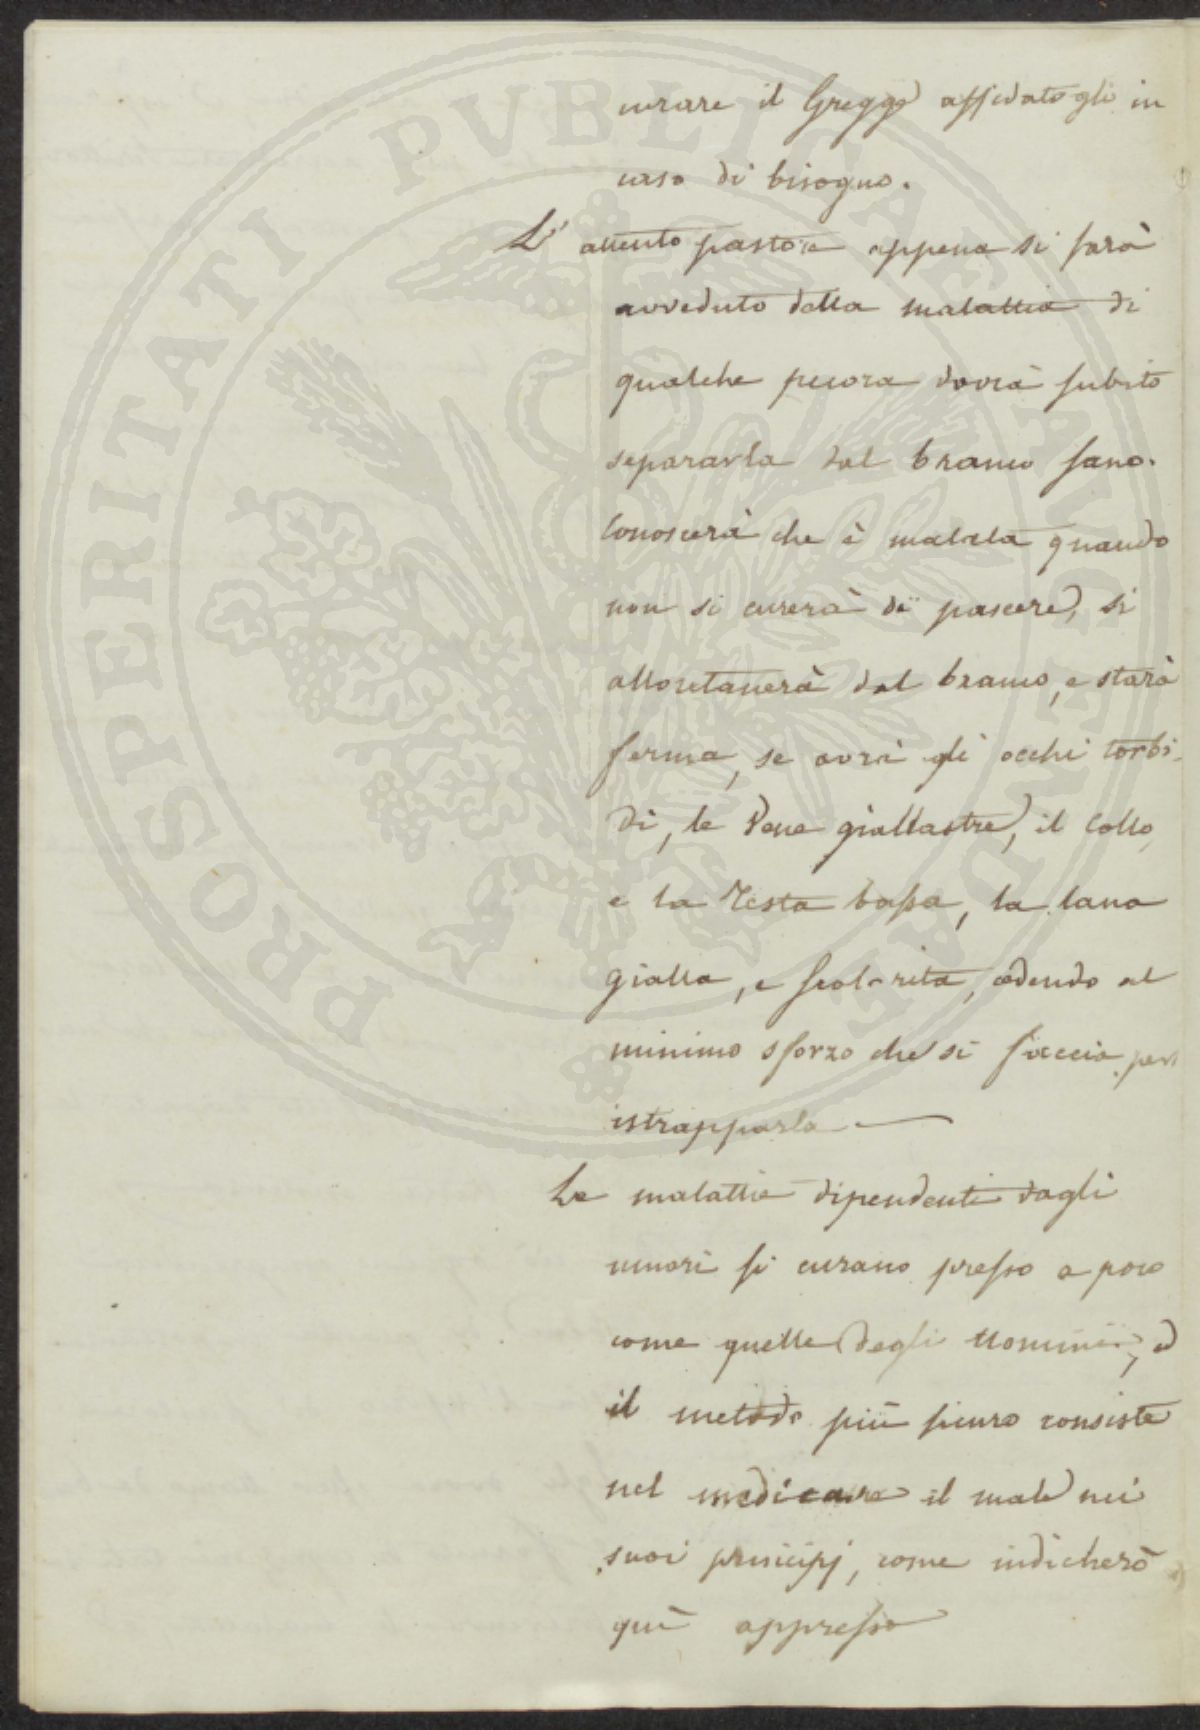 curare il Gregge affidatogli in
caso di bisogno.
L' attento pastore appena si sarà
avveduto della malattia di
qualche pecora dovrà subito
separarla dal branco sano.
Conoscerà che è malata quando
non si curerà di pascere, si
allontanerà dal branco, e starà
ferma, se avrà gli occhi torbi-
di, le Vene giallastre, il Collo,
e la Testa bassa, la lana
gialla, e scolorita, cedendo al
minimo sforzo che si faccia per
istrapparla —
Le malattie dipendenti dagli
umori si curano presso a poco
come quelle degli Uomini, ed
il metodo più sicuro consiste
nel medicare il male nei
suoi principj, come indicherò
quì appresso
PROSPERITATI PUBLICAE AUGENDAE